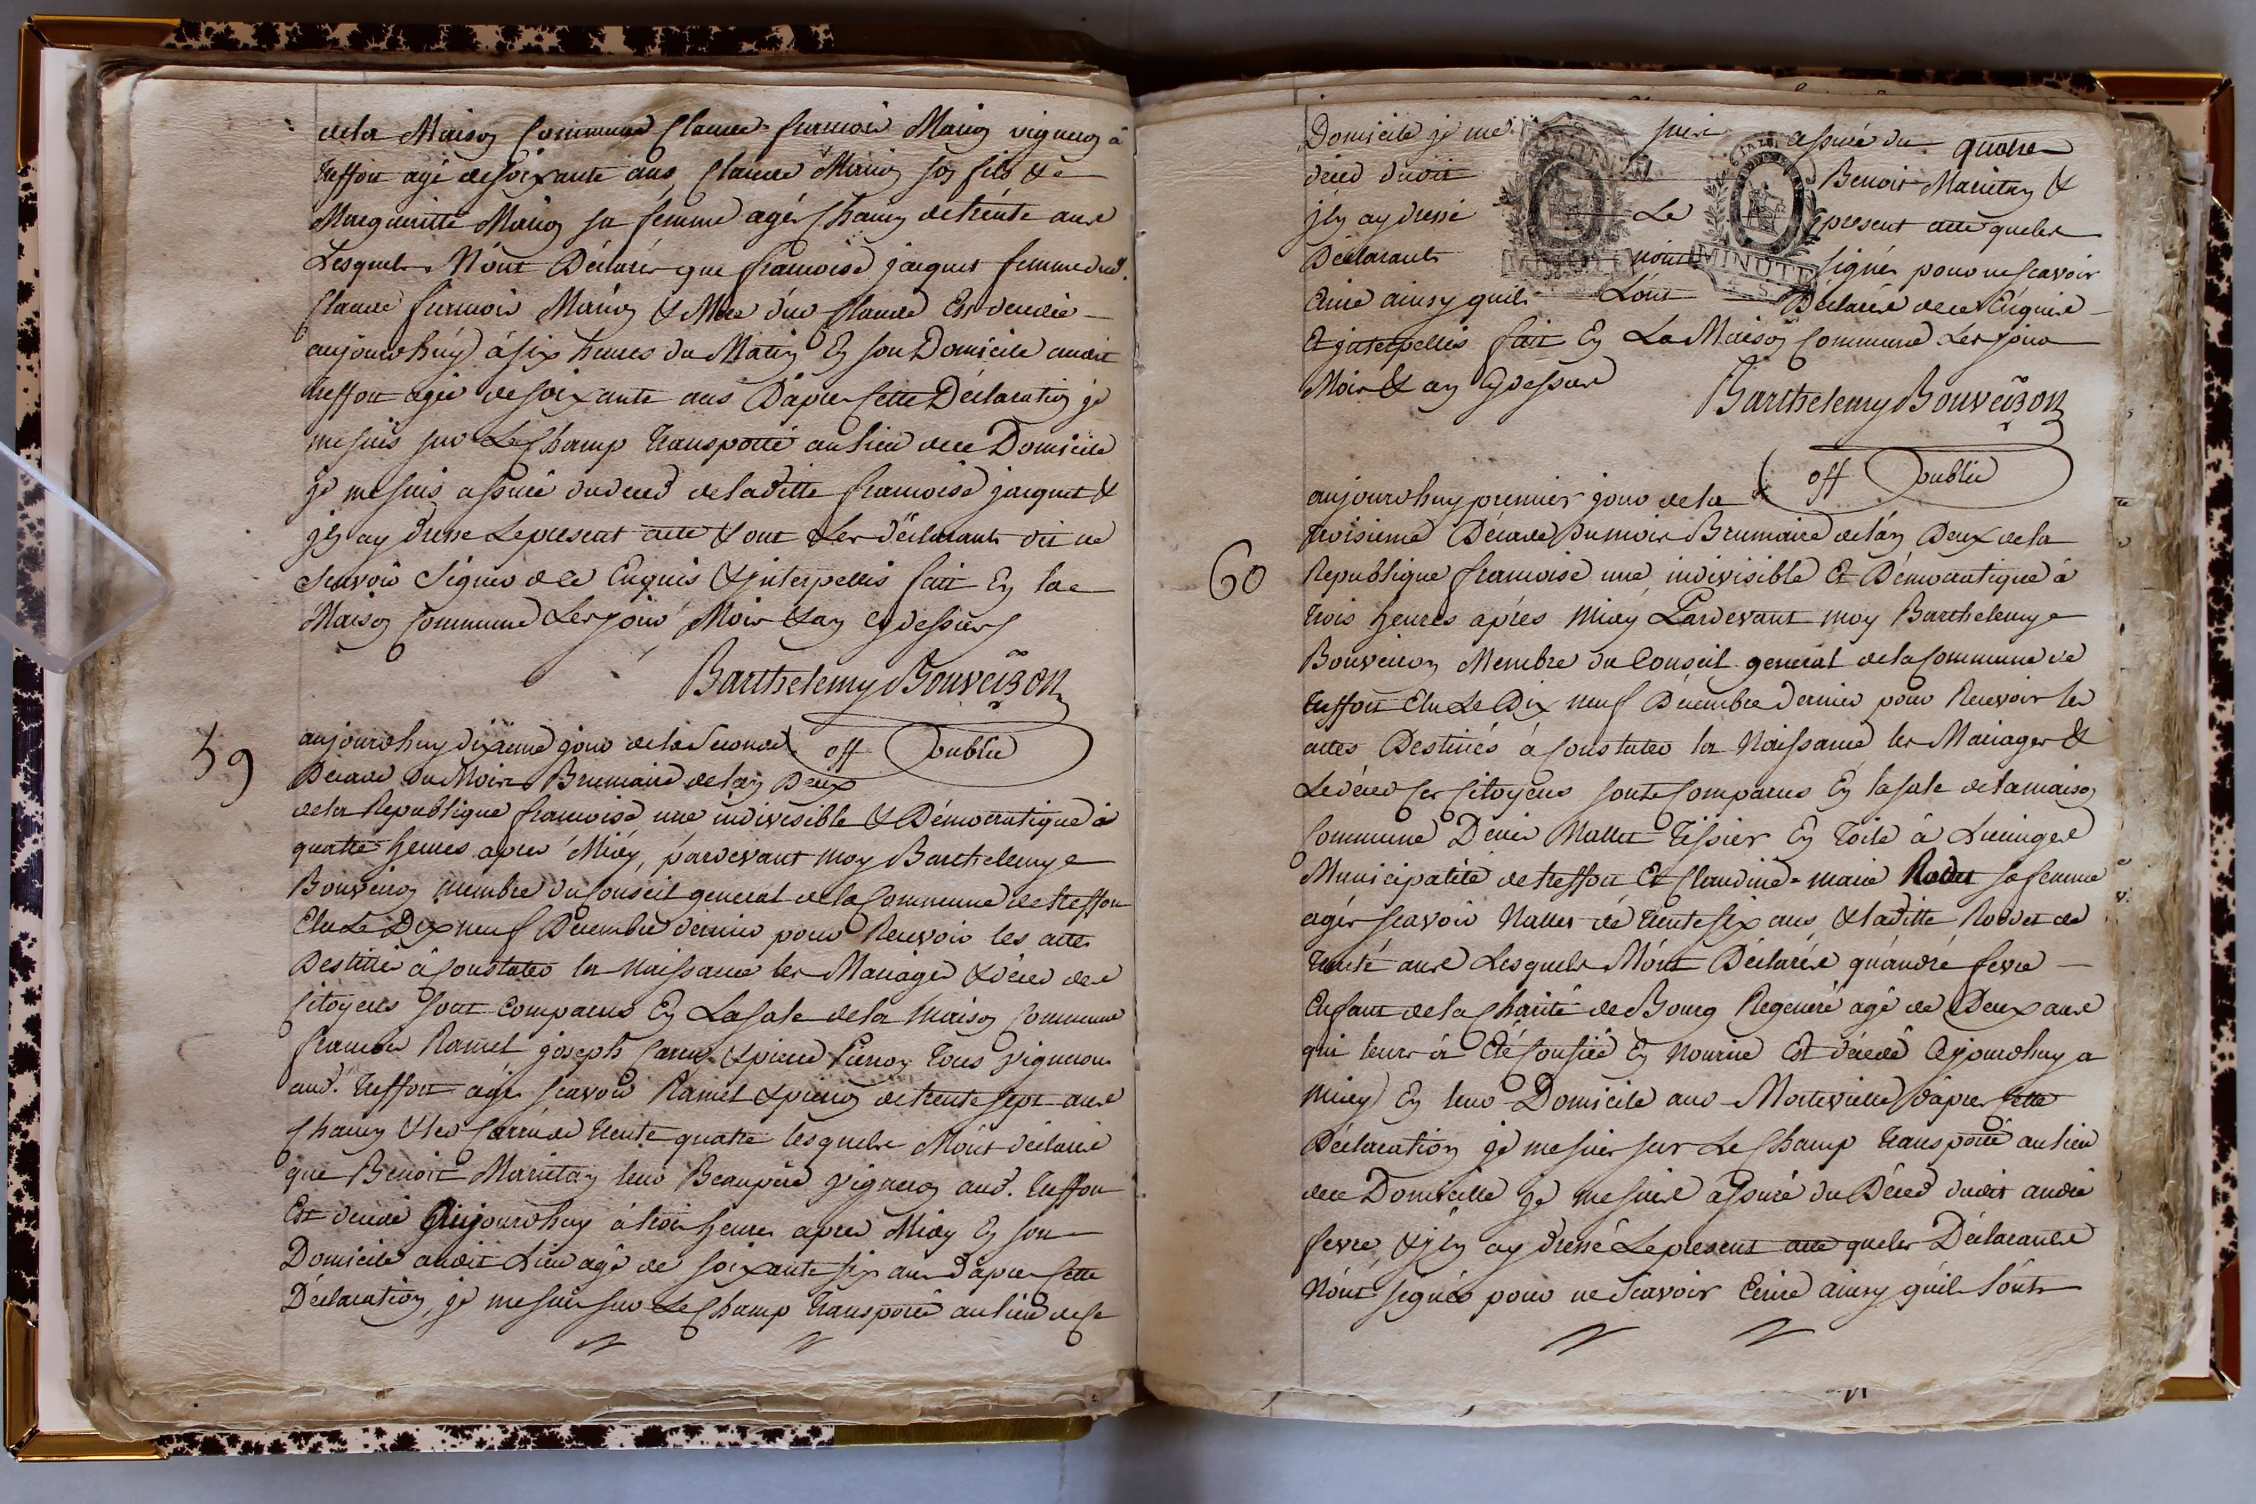 dela Maison Commune Claude françois Marion vigneron à
treffort agé de soixante ans Claude Marion son fils & de
Marguerite Marion sa femme agés chacun de trente ans
Lesquels M'ont Déclarés que françoise jacquet femme dud.
Claude françois Marion & Mere dud Claude Est décédée
aujourdhuy à six heures du Matin En son Domicile audit
treffort agée de soixante ans D'après Cette Déclaration je
me suis sur Le Champ transporté au lieu de ce Domicile
je me suis assuré du déced de laditte françoise jacquet &
j'en ay dressé Le present acte & ont Les déclarants dit ne
Scavoir Signer de ce Enquis & jnterpellés fait En la
Maison Commune Les jour Mois & an Cy dessus
Barthelemy Bouveiron
off public
59
aujourdhuy dixieme jour de la Seconde
Décade Du Mois Brumaire de l'an Deux
de la Republique françoise une indivisible & Démocratique à
quatre heures apres Midy, pardevant moy Barthelemy
Bouveiron membre du Conseil general de la Commune de treffort
Elu Le Dix neuf Décembre dernier pour Recevoir les actes
Destinés à Constater la Naissance les Mariages & déced des
Citoyens Sont Comparus En La Sale de la Maison Commune
françois Ramel joseph Carru & pierre Pierron tous vignerons
aud. treffort agés scavoir Ramel & pieron de trente sept ans
Chacun & led Carru de trente quatre lesquels M'ont déclaré
que Benoit Marietan leur Beaupere vigneron aud. treffort
Est décédé Aujourdhuy à trois heures apres Midy En son
Domicile audit Lieu agé de soixante six ans d'apres Cette
Déclaration, je me suis sur Le Champ transporté au lieu de Ce
Domicile je me suis assuré du quatre
déced dudit Benoit Marietan &
j'en ay dressé Le present acte que les
Déclarants n'ont signés pour ne scavoir
Ecrire ainsy quils L'ont Déclarés de ce Enquis
Et jnterpellés fait En La Maison Commune Les jour
Mois & an Cy dessus
Barthelemy Bouveiron
off public
60
aujourdhuy premier jour de la
troisieme Décade Du mois Brumaire de l'an Deux de la
Republique françoise une indivisible Et Démocratique à
trois heures apres Midy Pardevant moy Barthelemy
Bouveiron Membre du Conseil general de la Commune de
treffort Elu Le Dix neuf Décembre Dernier pour Recevoir les
actes Destinés à Constater la Naissance les Mariages &
Le déced des Citoyens sont Comparus En la sale de la maison
Commune Denis Mallet Tissier En Toile à
Municipalité de treffort Et Claudine-marie Rodet sa femme
agés scavoir Mallet de trente six ans & laditte Rodet de
trente ans Lesquels M'ont Déclarés qu'andré fevre
Enfant de la Charité de Bourg Regeneré agé de Deux ans
qui leurs à Eté Confié En Nourice Est décedé Cejourdhuy a
Midy En leur Domicile d'apres Cette
Déclaration je me suis sur Le Champ transporté au lieu
de ce Domicille je me suis assuré du Déced dudit andré
fevre, & j'en ay dressé Le present acte que les Déclarants
N'ont signés pour ne Scavoir Ecrire ainsy qu'ils L'ont
MINUTE